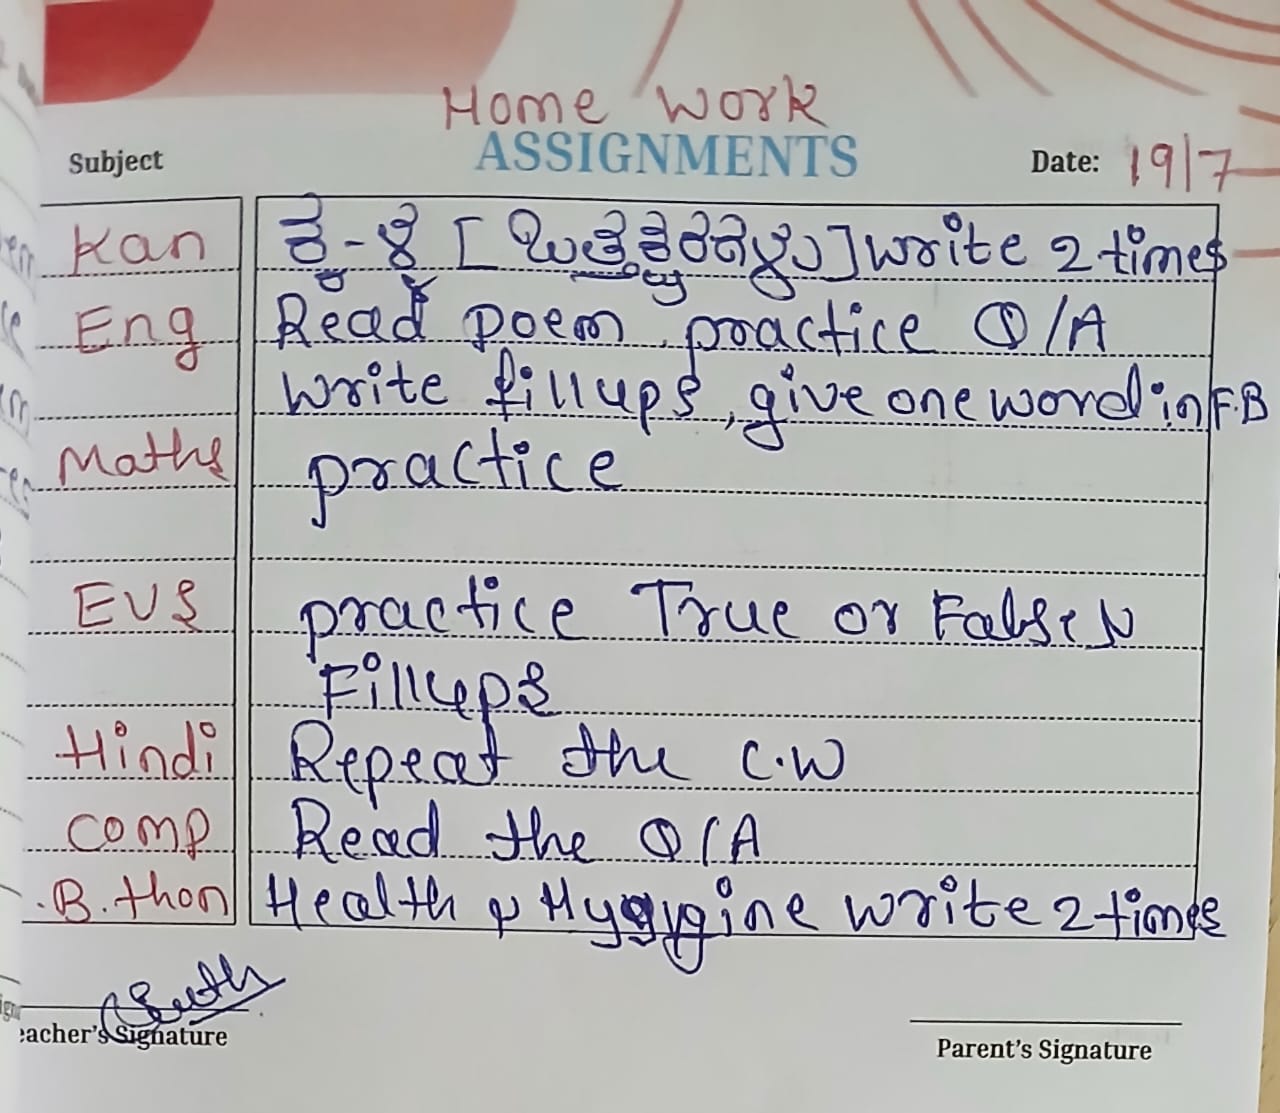 Home Work
ASSIGNMENTS
Subject
Date: 19/7
Kan [ ] write 2 times
Eng Read poem, practice Q/A
write fillups, give one word in F.B
Maths practice
EVS practice True or False N
Fillups
Hindi Repeat the C.W
Comp Read the Q/A
B.thon Health & Hygygine write 2 times
Teacher's Signature
Parent's Signature